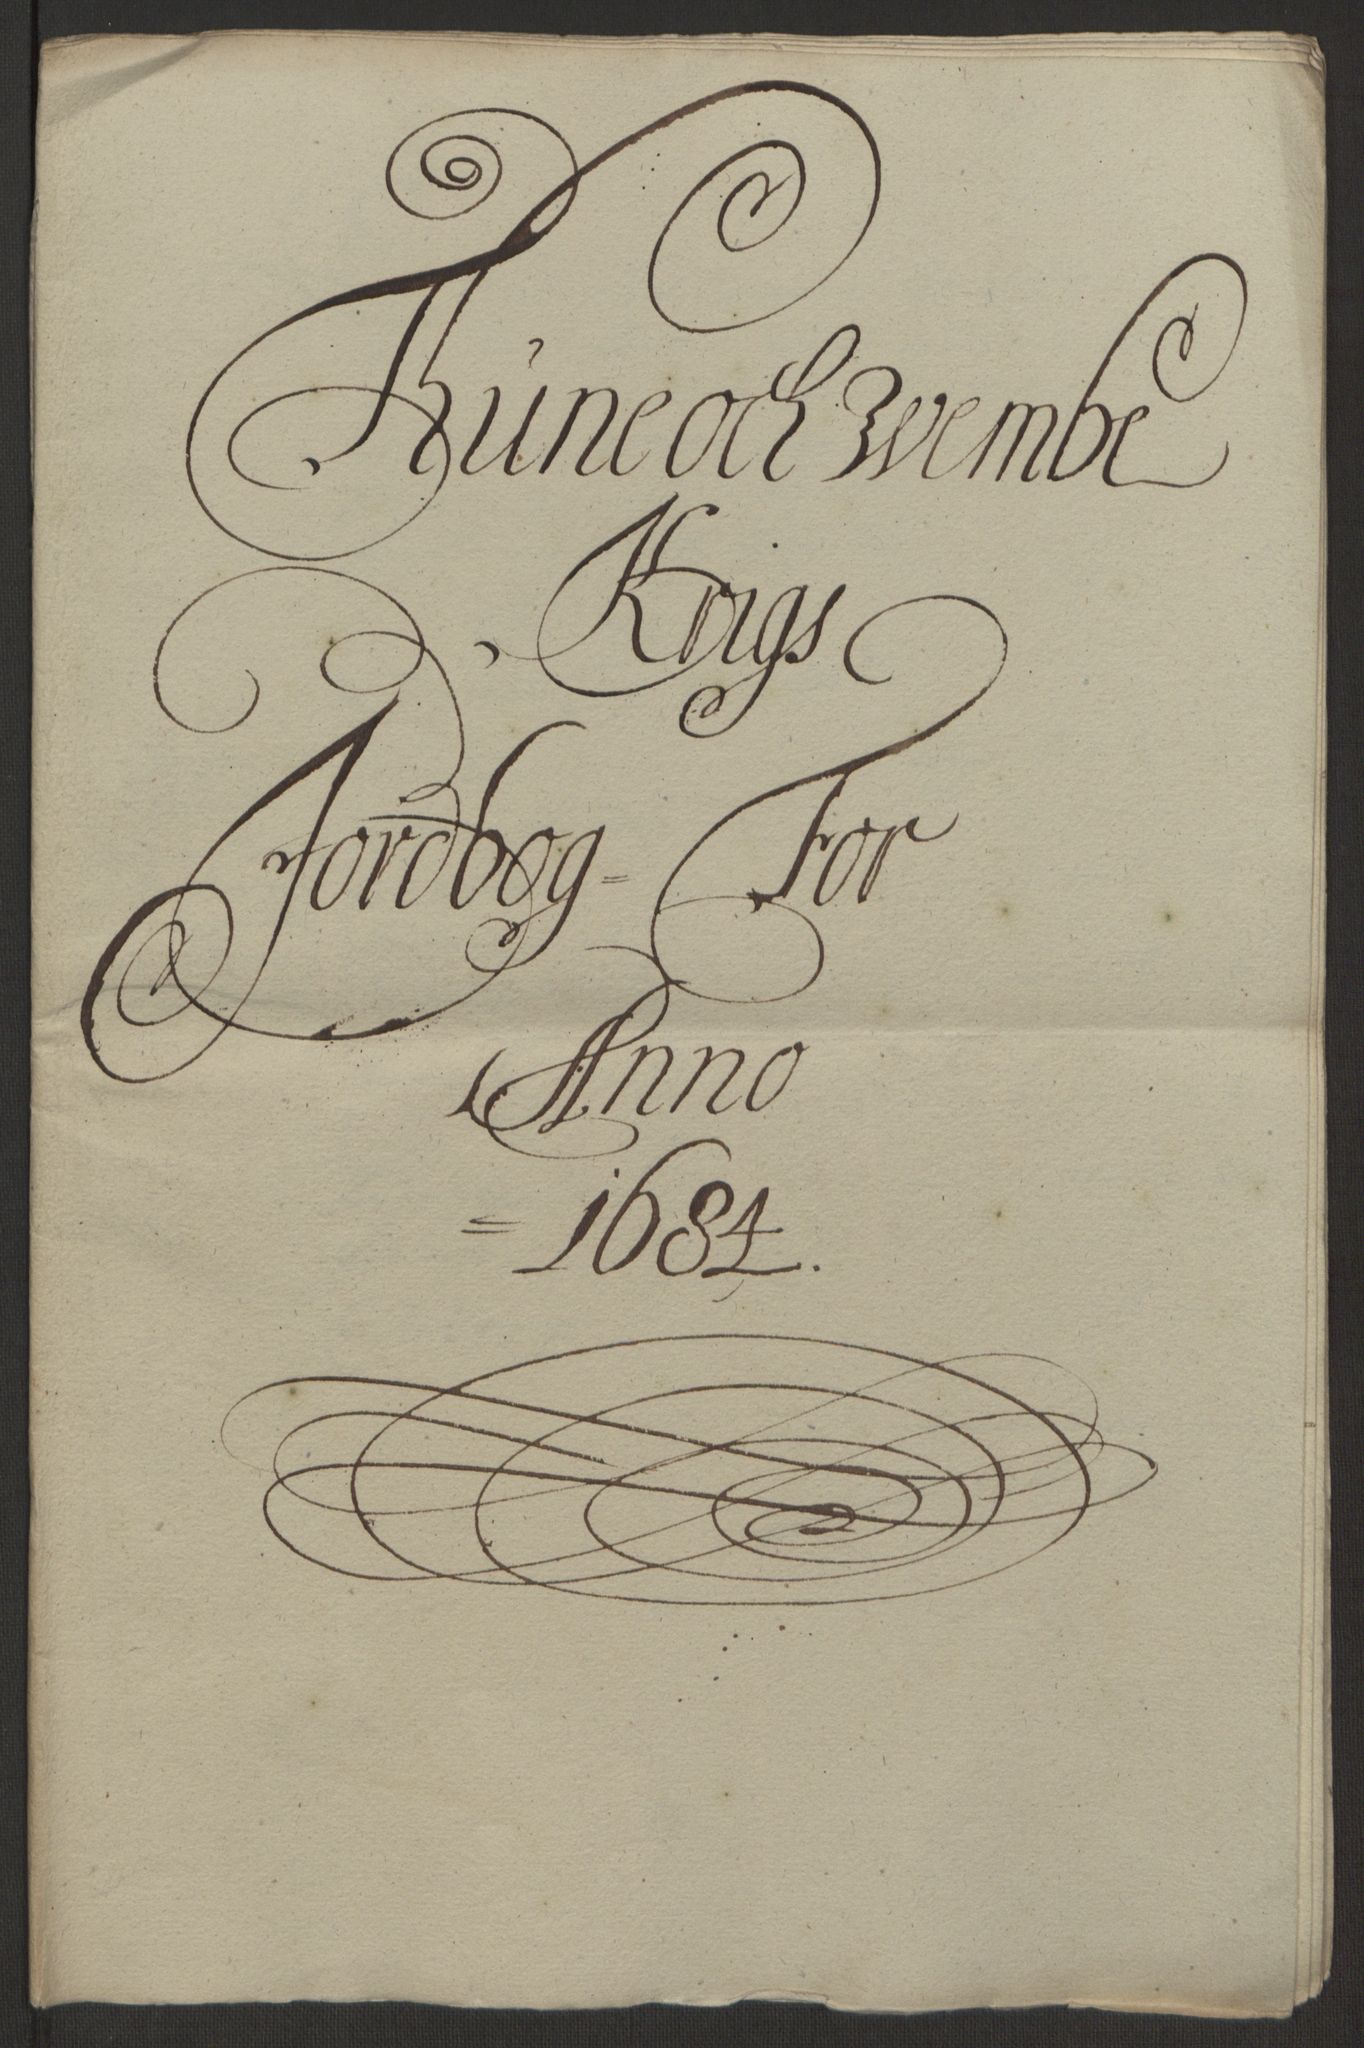 Thüne och Wembe
Krigs
Jordbog = For
Anno
= 1684.